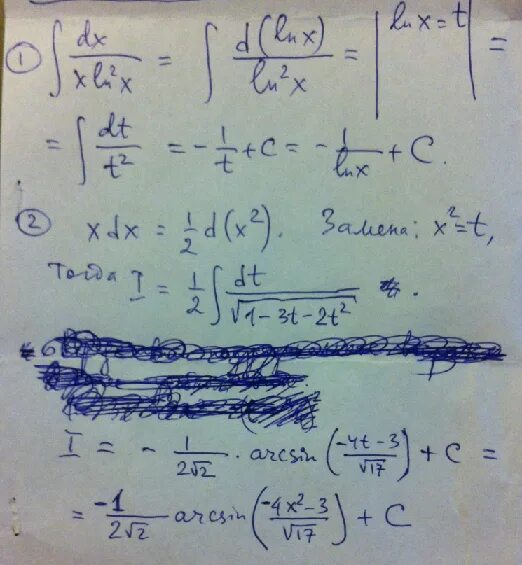 ① ∫ dx / (x ln²x) = ∫ d(ln x) / ln²x = | ln x = t | =
= ∫ dt / t² = - 1/t + C = - 1/ln x + C.
② x dx = 1/2 d(x²). Замена: x² = t,
Тогда I = 1/2 ∫ dt / √(1-3t-2t²) .
I = - 1/(2√2) · arcsin((-4t-3)/√17) + C =
= -1/(2√2) arcsin((-4x²-3)/√17) + C